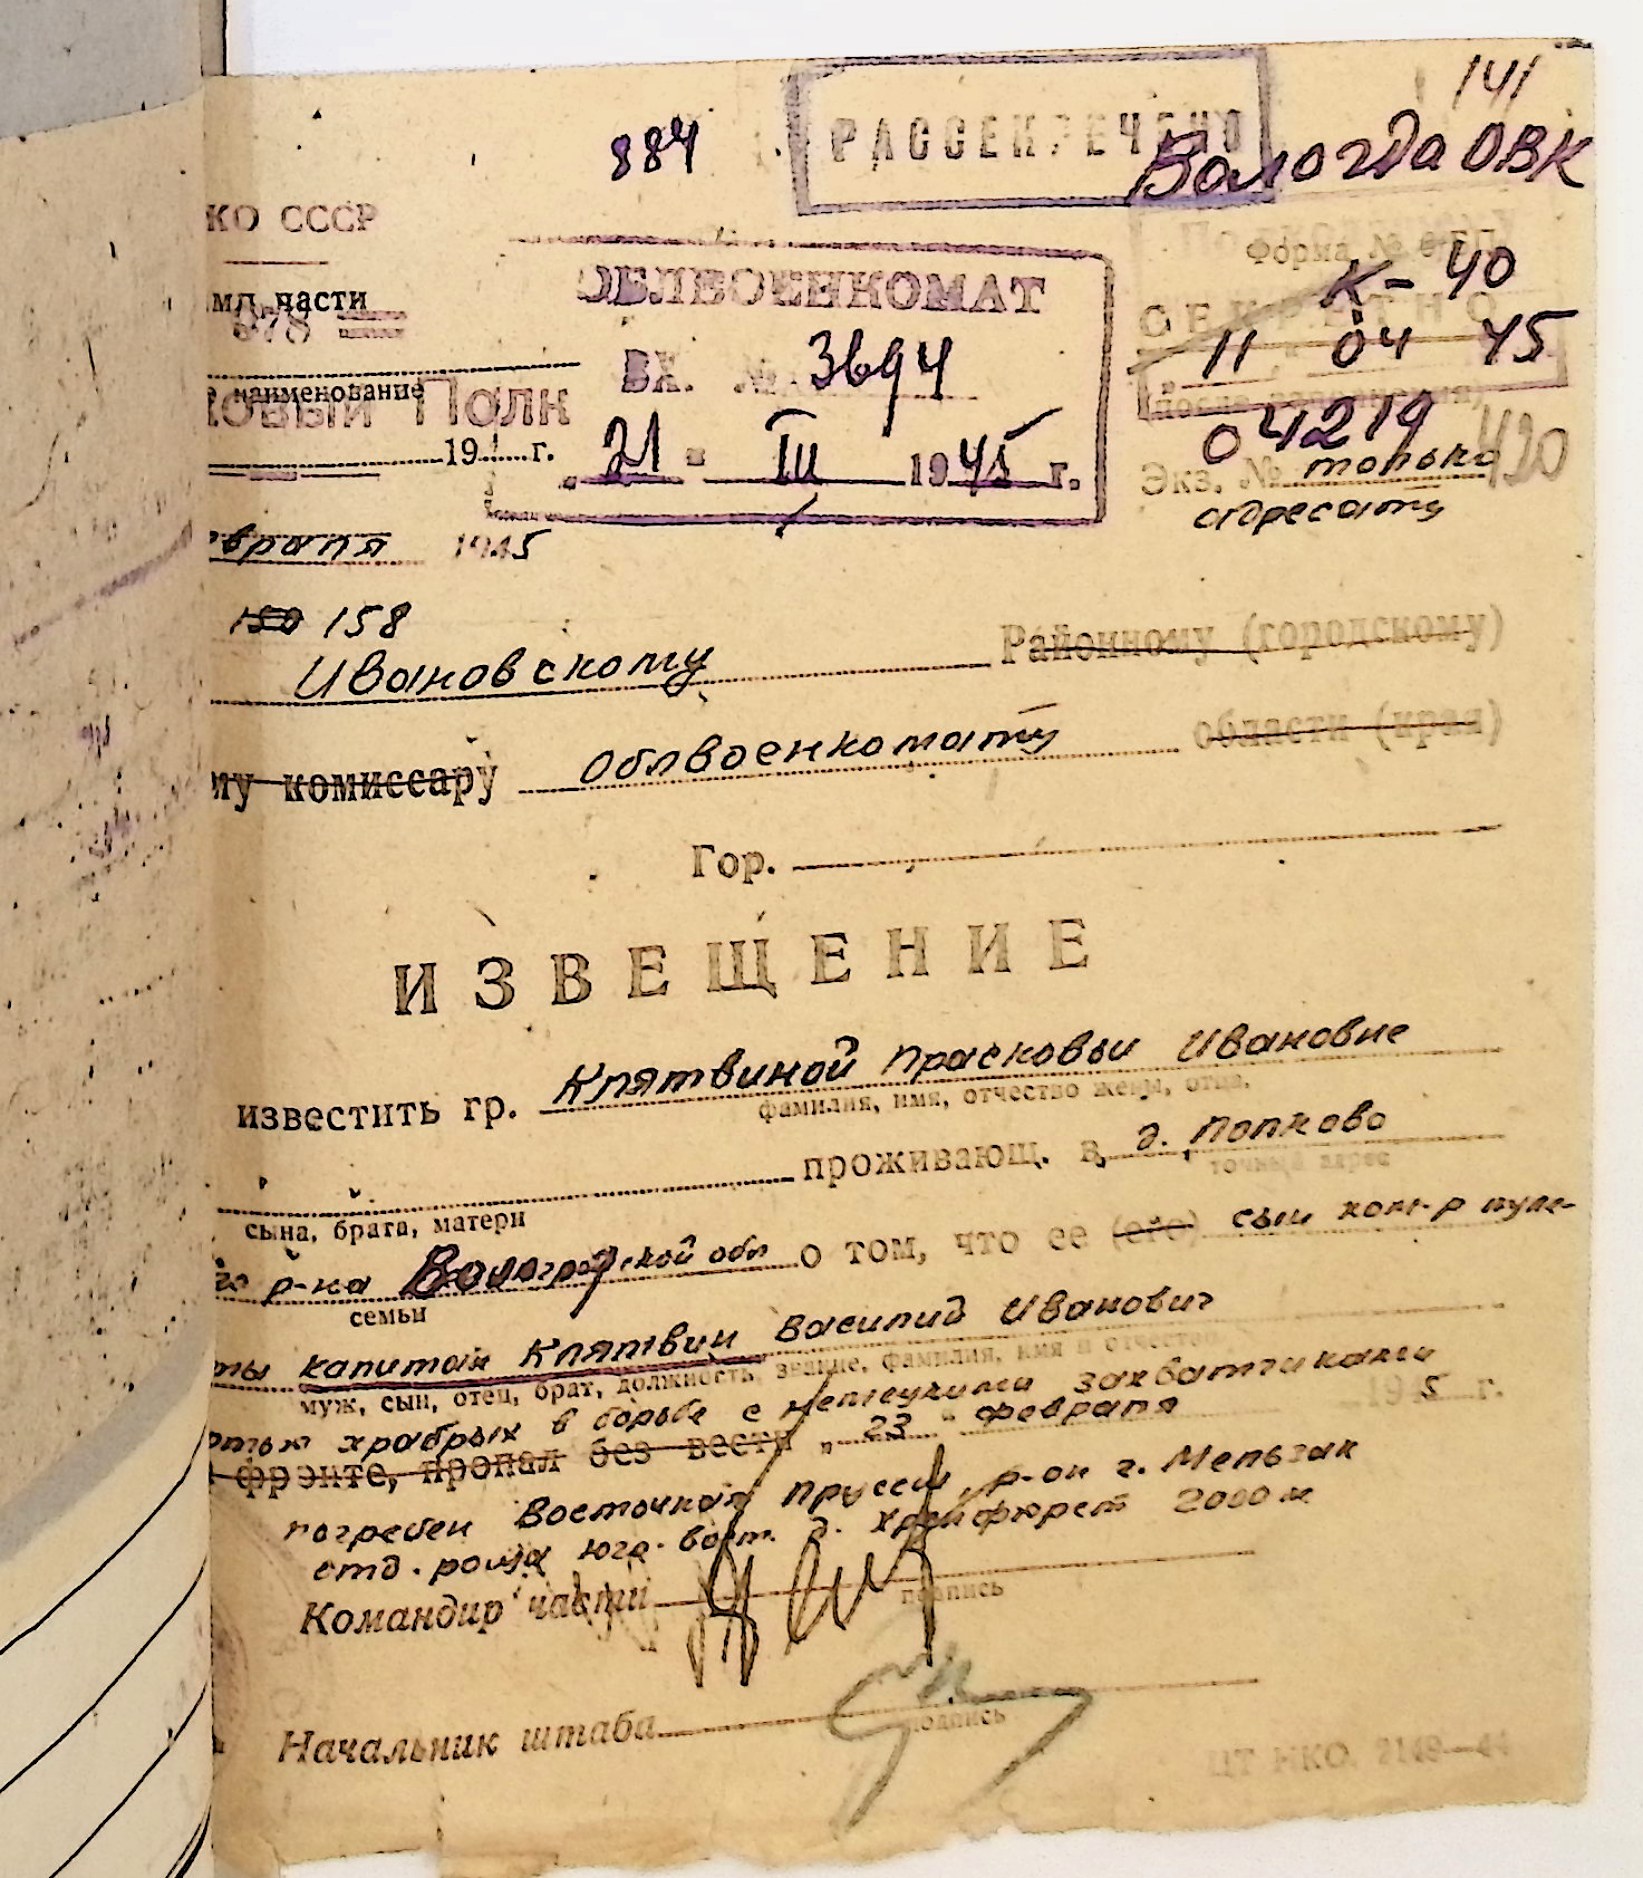 141
884
РАССЕКРЕЧЕНО
Вологда ОВК
КО СССР
Форма №
ОБЛВОЕНКОМАТ
К-40
части
СЕКРЕТНО
678
ВХ. № 3694
11 04 45
наименование
овый Полк
04219
19 г.
21 - III 1945 г.
Экз. № только
адресату
враля 1945
158
Ивановскому Районному (городскому)
му комиссару Облвоенкомату области (края)
Гор.
ИЗВЕЩЕНИЕ
известить гр. Клятвиной Прасковьи Ивановне
фамилия, имя, отчество жены, отца,
проживающ. в д. Попково
точный адрес
сына, брата, матери
го р-на Вологодской обл о том, что ее (его) сын ком-р пуле-
семьи
ты капитан Клятвин Василий Иванович
муж, сын, отец, брат, должность, звание, фамилия, имя и отчество
ртью храбрых в борьбе с немецкими захватчиками
фронте, пропал без вести „23" февраля 1945 г.
погребен Восточная Пруссия, р-он г. Мельзак
отд. роща юго-вост. д. 2000 м
Командир части
подпись
Начальник штаба
подпись
ЦТ НКО. 2149—44